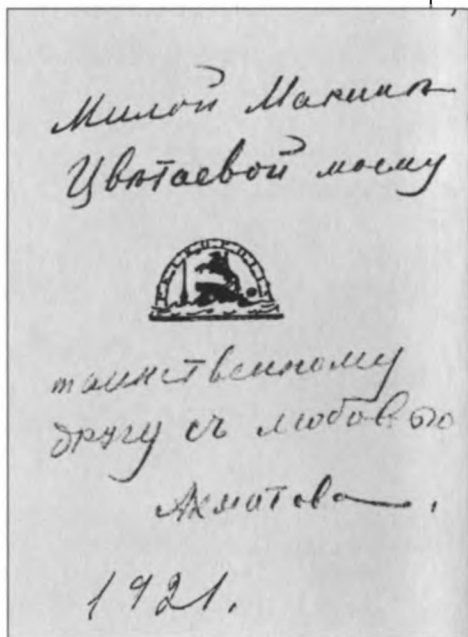 Милой Марине
Цвѣтаевой моему
таинственному
другу съ любовью
Ахматова.
1921.